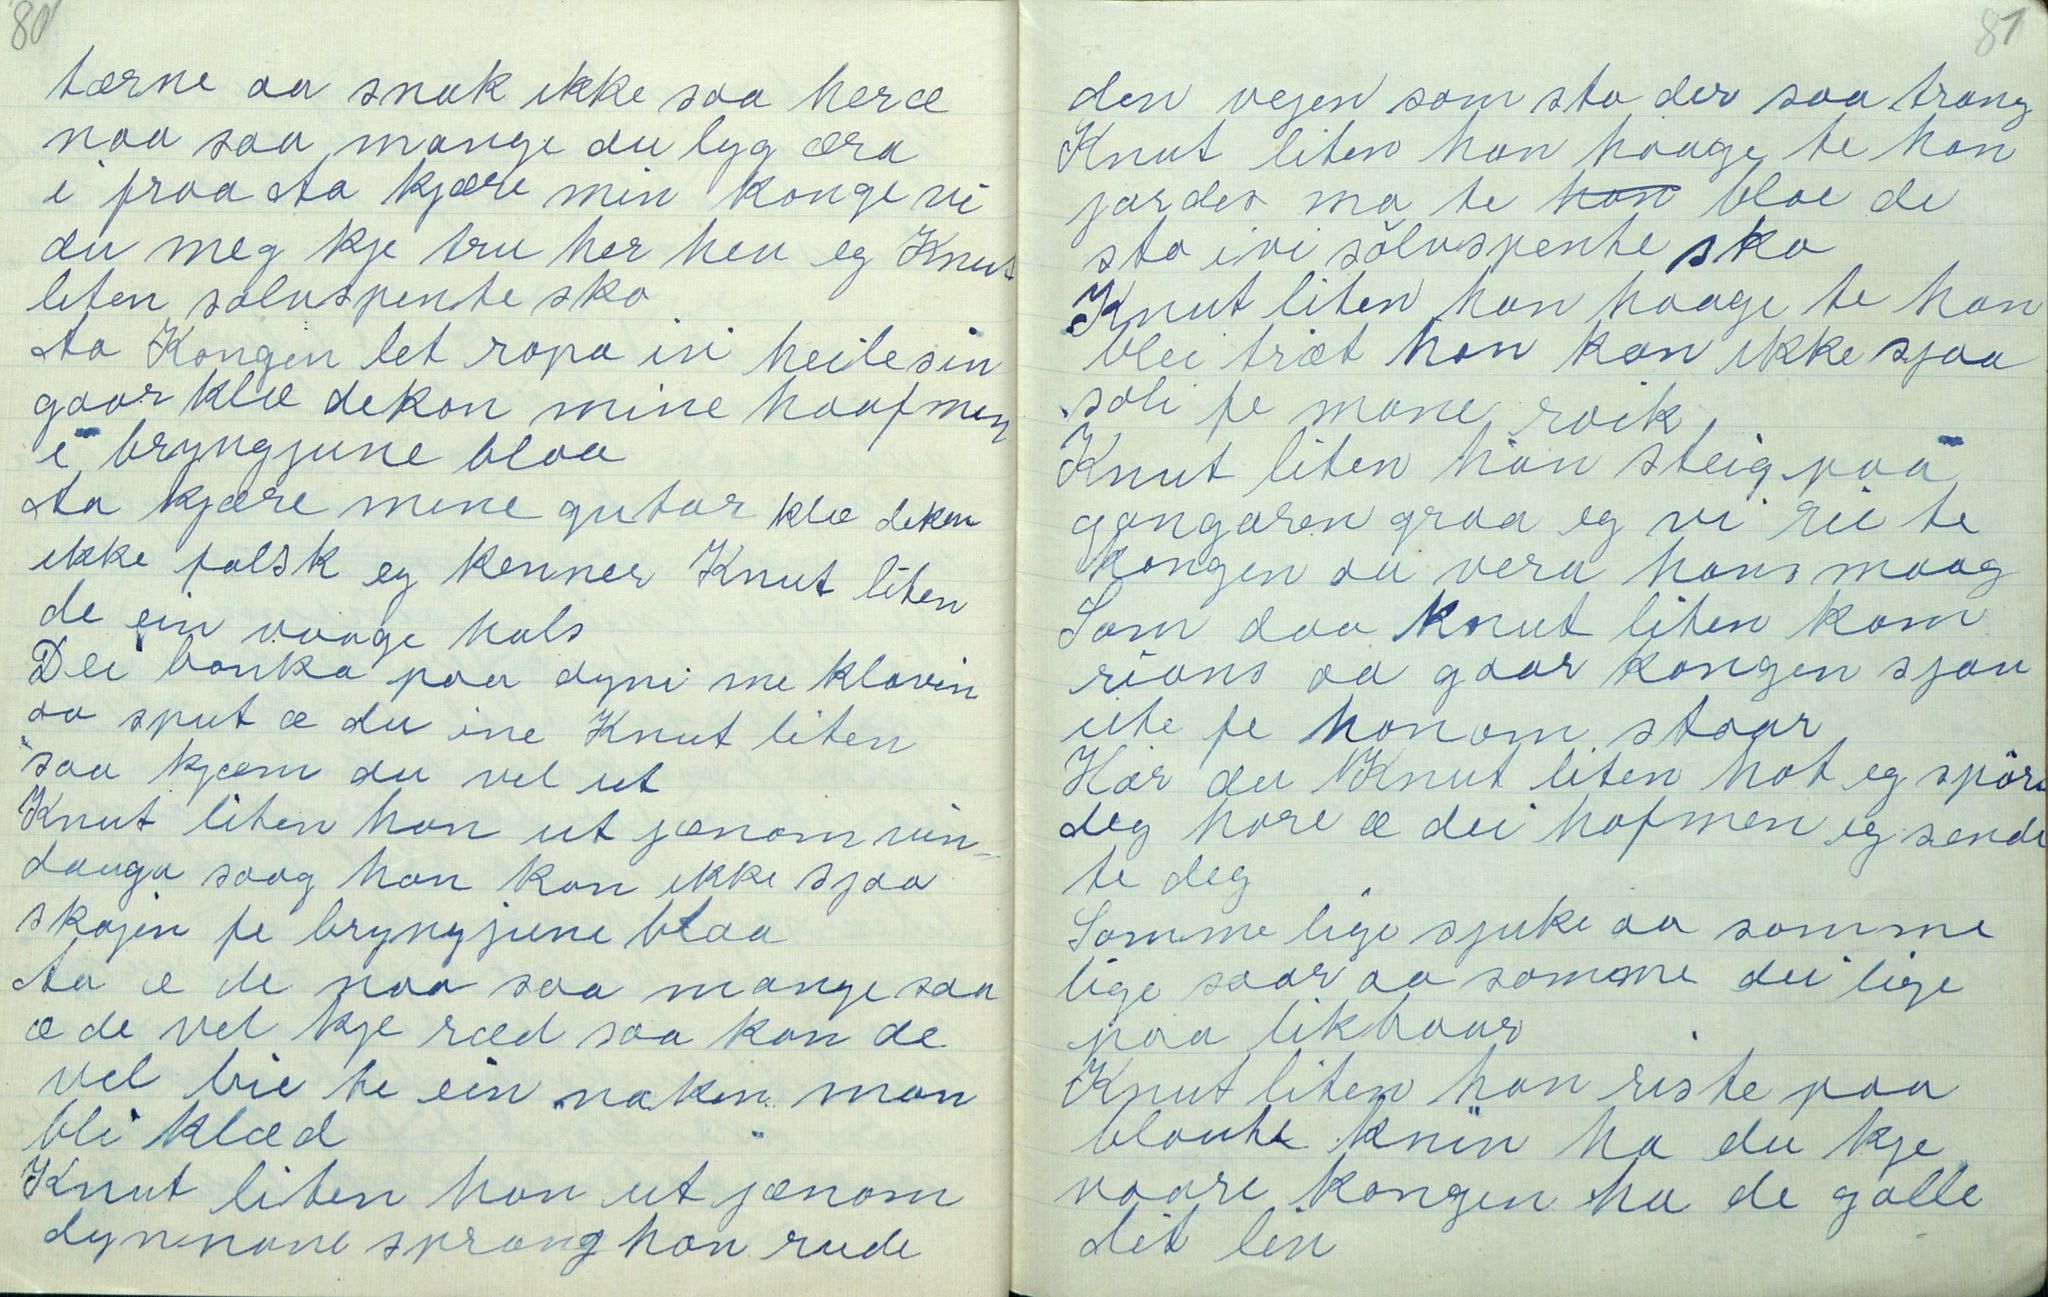 80
tærne aa snak ikke saa heræ
naa saa mange du lyg æra
i fraa Aa kjære min konge vi
du meg kje tru her heu eg Knut
liten sølvspente sko
Aa Kongen let ropa ivi heilesin
gaar klæ dekon mine haafmen
i bryngjune blaa
Aa kjære mine gutar klæ deken
ikke falsk eg kenner Knut liten
de ein vaage hals
Dei banka paa dyni me klavin
aa sput æ du ine Knut liten
saa kjæm du vel ut
Knut liten han ut jænom vin-
dauga saag han kan ikke sjaa
skajin fe bryngjune blaa
Aa æ de naa saa mange saa
æ de vel kje ræd saa kan de
vel bie te ein naken man
bli klæd
Knut liten han ut jænom
dynnane sprang han rude
81
den vegen som sto der saa trang
Knut liten han haage te han
jordes ma te han bloe de
sto ivi sölvspente sko
Knut liten han haage te han
blei træt han kan ikke sjaa
soli fe mane roik
Knut liten han steig paa
gangaren graa eg vi rie te
kongen aa vera hans maag
Som daa Knut liten kom
rians aa gaar kongen sjau
ute fe honom staar
Hør du Knut liten hot eg spöre
deg hore æ dei hofmen eg sende
te deg
Somme lige sjuke aa somme
lige saar aa somme dei lige
paa likbaar
Knut liten han riste paa
blanke kniv ha du kje
vaare kongen ha de galle
dit liv